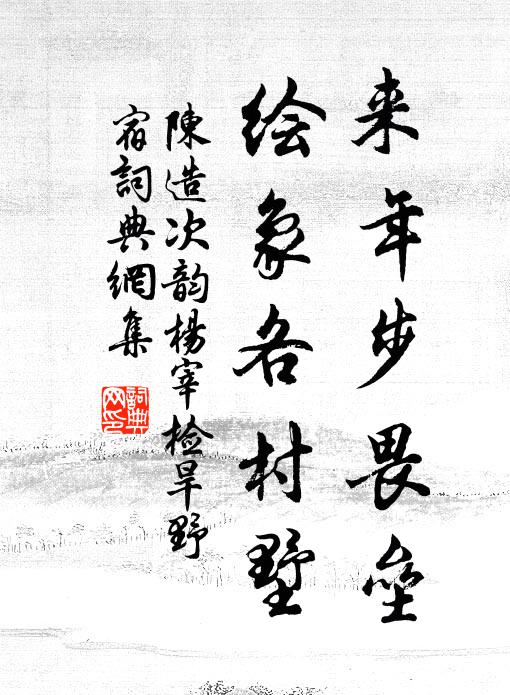 来年步畏垒
绘象各村墅
陳造次韵楊宰检旱野
宿詞典網集
詞典
网印